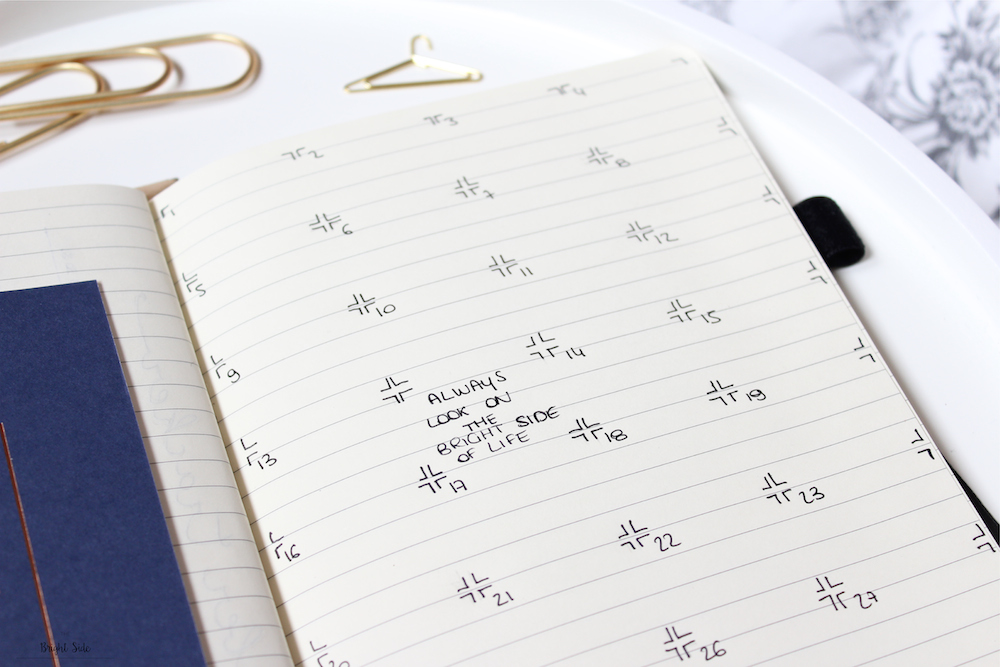 1 2 3 4
5 6 7 8
9 10 11 12
13 14 15
ALWAYS
LOOK ON
THE
BRIGHT SIDE
OF LIFE
16 17 18 19
20 21 22 23
26 27
Bright Side